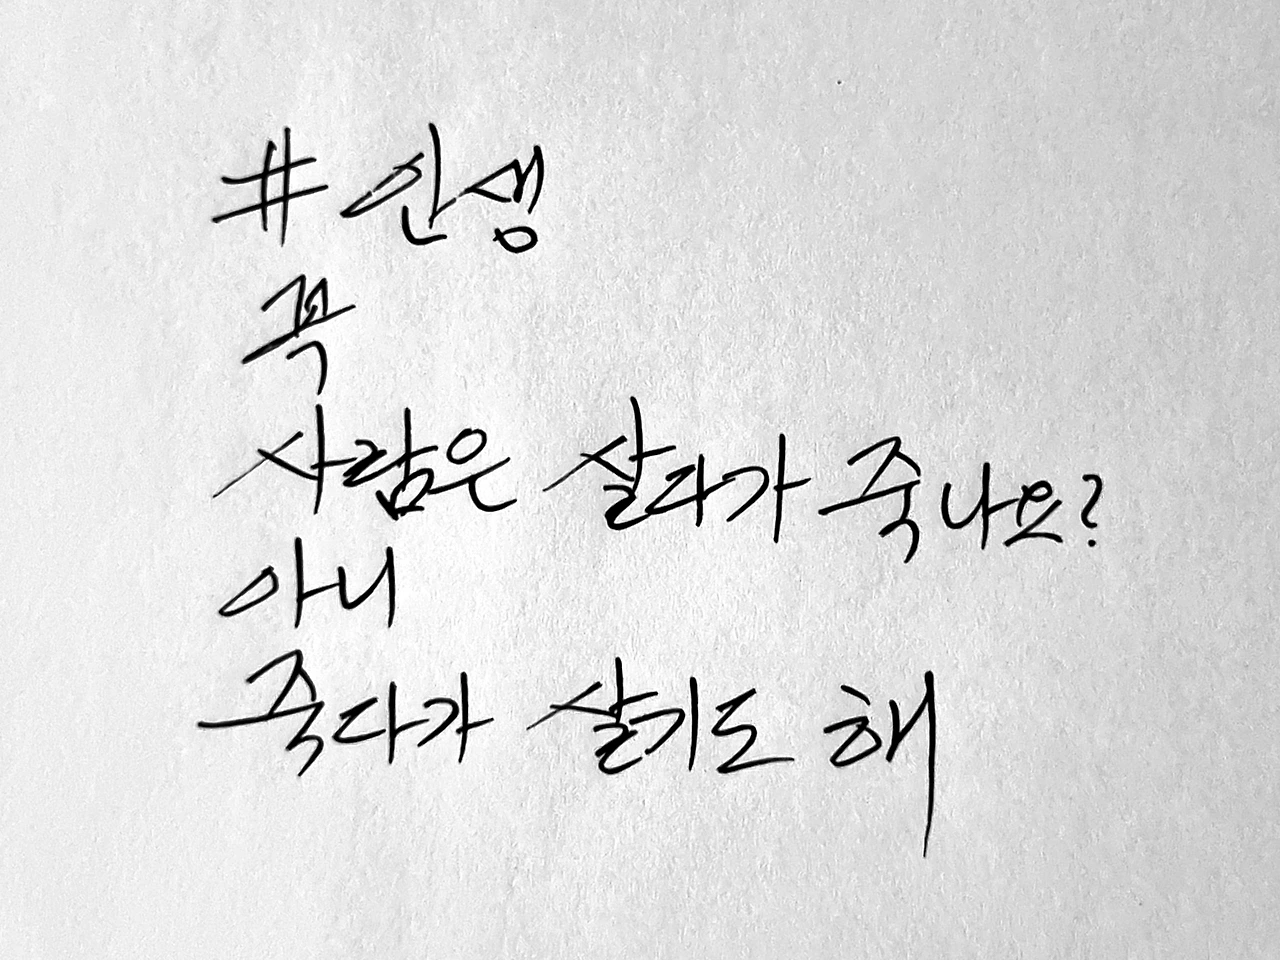 # 인생
꼭
사람은 살다가 죽나요?
아니
죽다가 살기도 해